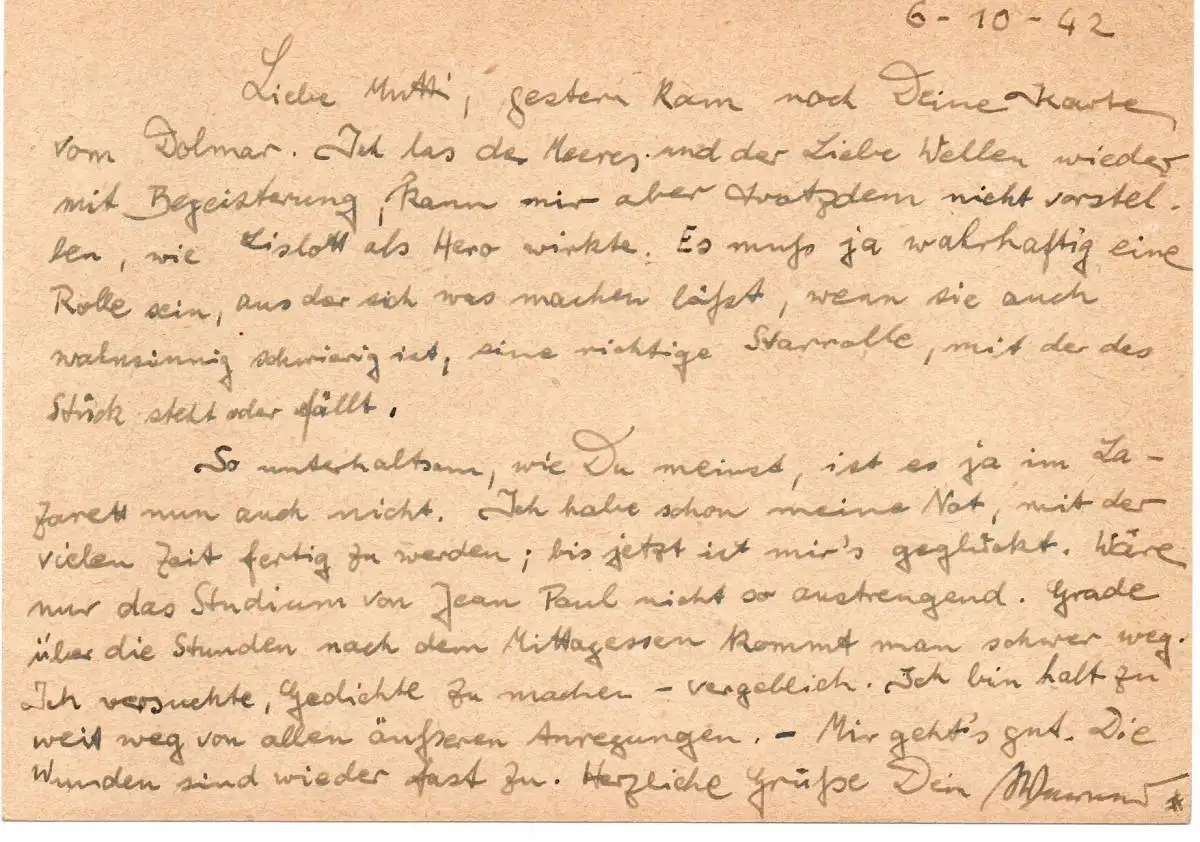 6-10-42
Liebe Mutti, gestern kam noch Deine Karte
vom Dolmar. Ich las des Meeres und der Liebe Wellen wieder
mit Begeisterung, kann mir aber trotzdem nicht vorstel-
len, wie Lislott als Hero wirkte. Es muß ja wahrhaftig eine
Rolle sein, aus der sich was machen läßt, wenn sie auch
wahnsinnig schwierig ist, eine richtige Starrolle, mit der das
Stück steht oder fällt.
So unterhaltsam, wie Du meinst, ist es ja im La-
zarett nun auch nicht. Ich habe schon meine Not, mit der
vielen Zeit fertig zu werden; bis jetzt ist mir's geglückt. Wäre
nur das Studium von Jean Paul nicht so anstrengend. Grade
über die Stunden nach dem Mittagessen kommt man schwer weg.
Ich versuchte, Gedichte zu machen - vergeblich. Ich bin halt zu
weit weg von allen äußeren Anregungen. - Mir geht's gut. Die
Wunden sind wieder fast zu. Herzliche Grüße Dein